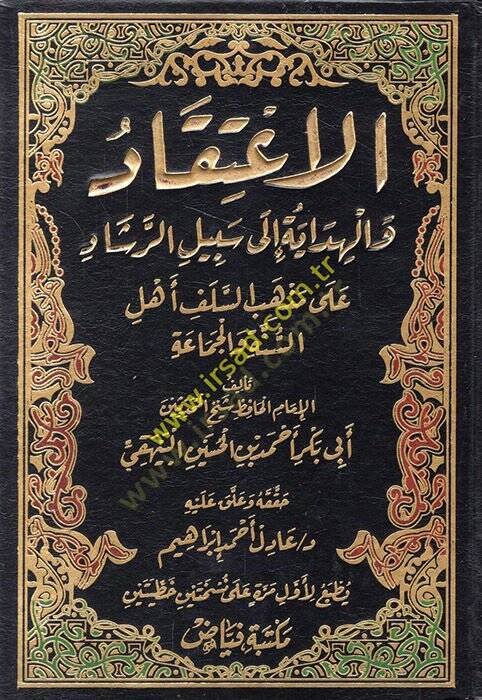 الاعْتِقَادُ
وَالهِدَايَةُ إِلَى سَبِيلِ الرَّشَادِ
عَلَى مَذْهَبِ السَّلَفِ أَهْلِ
السُّنَّةِ وَالْجَمَاعَةِ
تأليف
الإمام الحافظ شيخ
أَبِي بَكْرٍ أَحْمَدَ بْنِ الحُسَيْنِ البَيْهَقِيِّ
حَقَّقَهُ وَعَلَّقَ عَلَيْهِ
د/ عَادِل أَحْمَد إِبْرَاهِيم
يُطْبَعُ لِأَوَّلِ مَرَّةٍ عَلَى نُسْخَتَيْنِ خَطِّيَّتَيْنِ
مَكْتَبَة فَيَّاض
www.irsad.com.tr